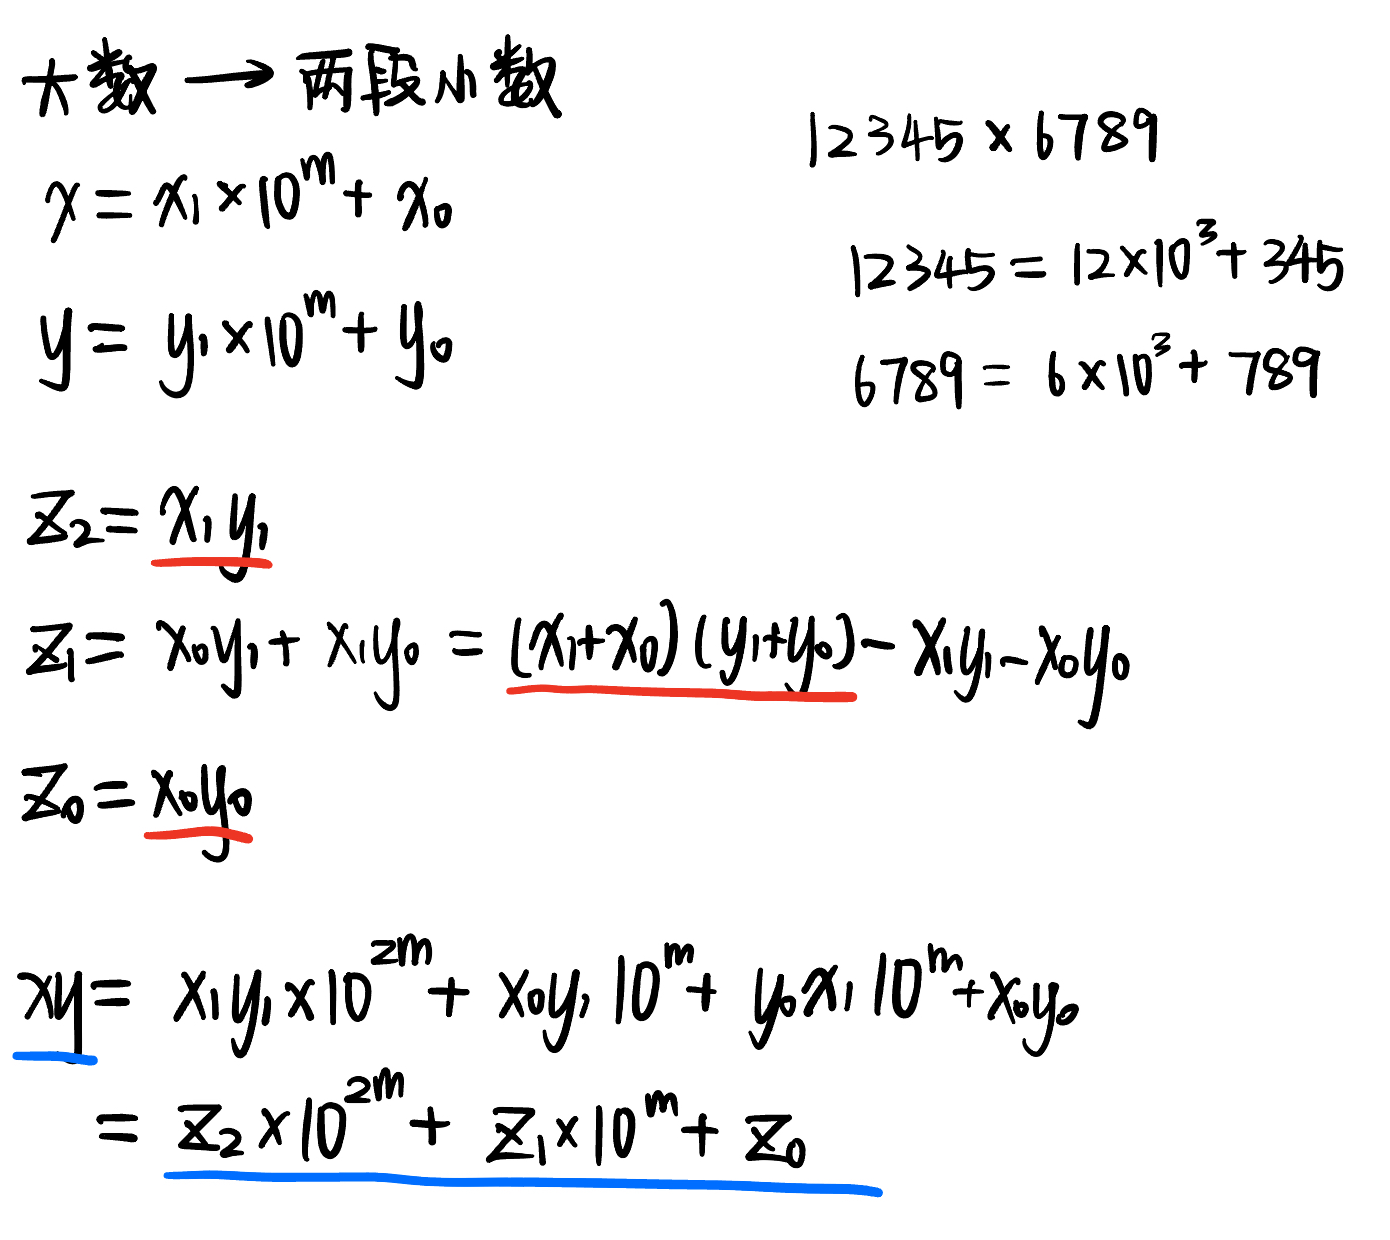 大数 → 两段小数
x = x₁ × 10ᵐ + x₀
y = y₁ × 10ᵐ + y₀
12345 × 6789
12345 = 12×10³ + 345
6789 = 6×10³ + 789
z₂ = x₁y₁
z₁ = x₀y₁ + x₁y₀ = (x₁+x₀)(y₁+y₀) − x₁y₁ − x₀y₀
z₀ = x₀y₀
xy = x₁y₁ × 10²ᵐ + x₀y₁ 10ᵐ + y₀x₁ 10ᵐ + x₀y₀
= z₂ × 10²ᵐ + z₁ × 10ᵐ + z₀